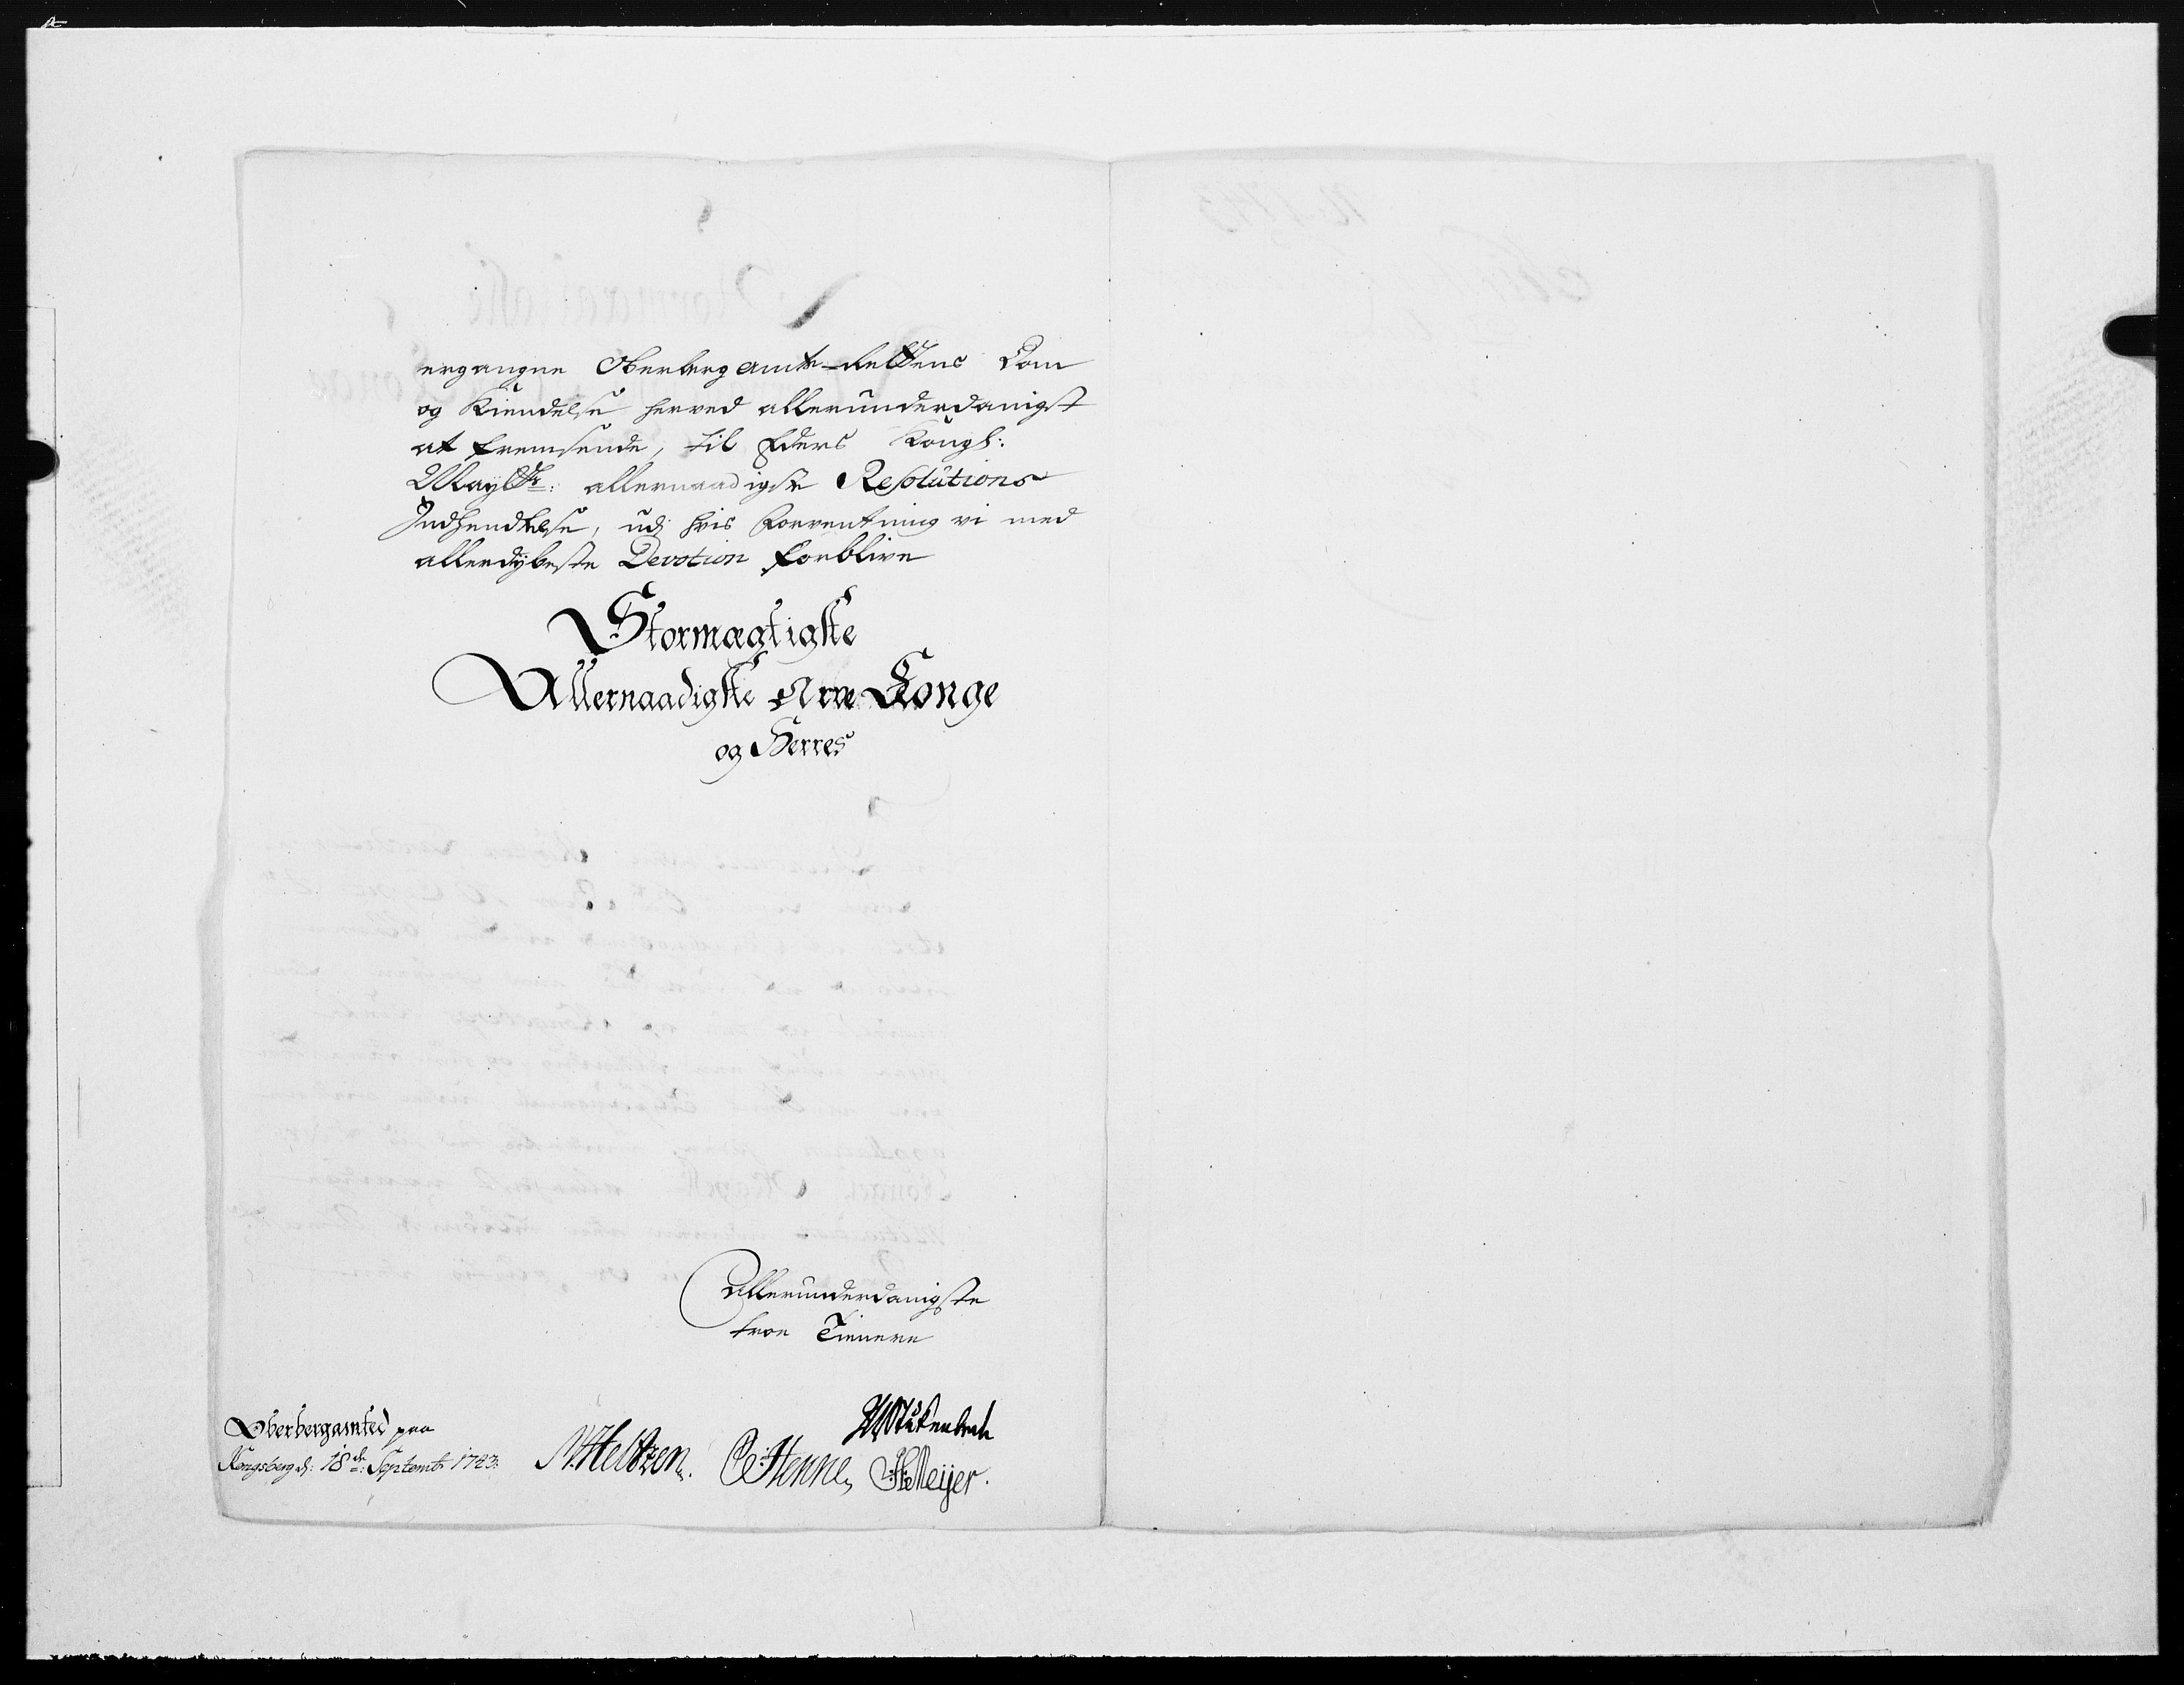 ergangne Oberbergamts-Rettens Dom
og Kiendelse herved allerunderdanigst
at fremsende, til Eders Kongl:
Maytts: allernaadigste Resolutions
Indhendtelse, udj hvis Forventning vi med
allerdybeste Devotion forblive
Stormægtigste
Allernaadigste Arve Konge
og Herres
Allerunderdanigste
troe Tienere
Oberbergamted paa
Kongsberg d: 18de Septembr 1743:
N. Heltzen. Henne, Meijer.